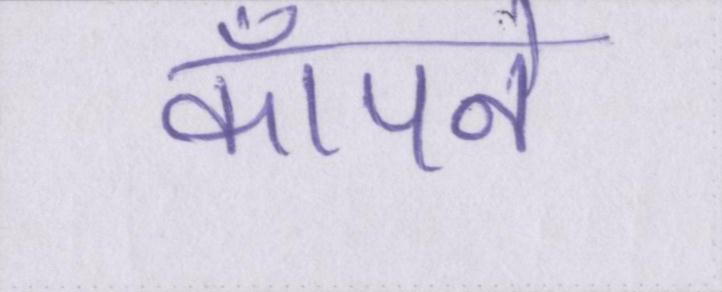 काँपने